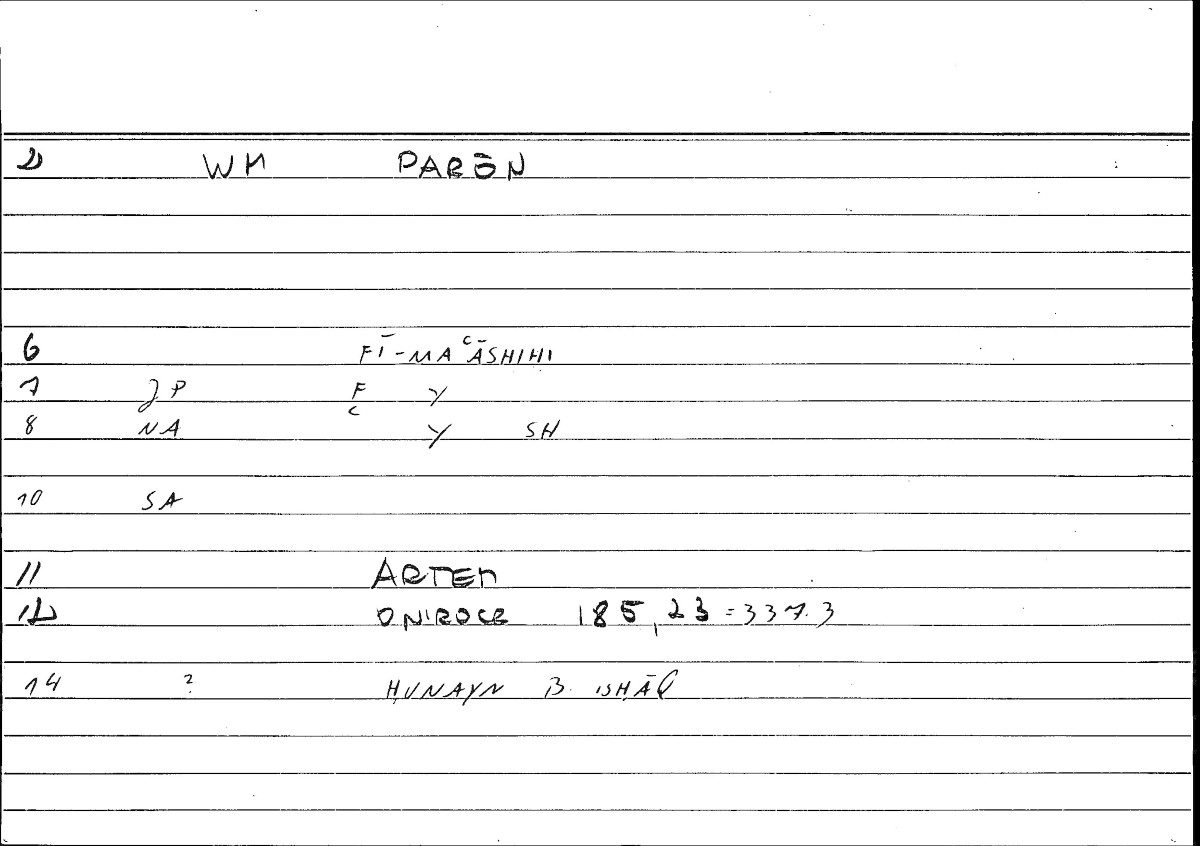 2 WM PARŌN
6 FĪ-MAʿĀSHIHI
7 JP F Y
8 NA C Y SH
10 SA
11 ARTEM
12 ONIROCR 185,23=337.3
14 ? ḤUNAYN B. ISḤĀQ